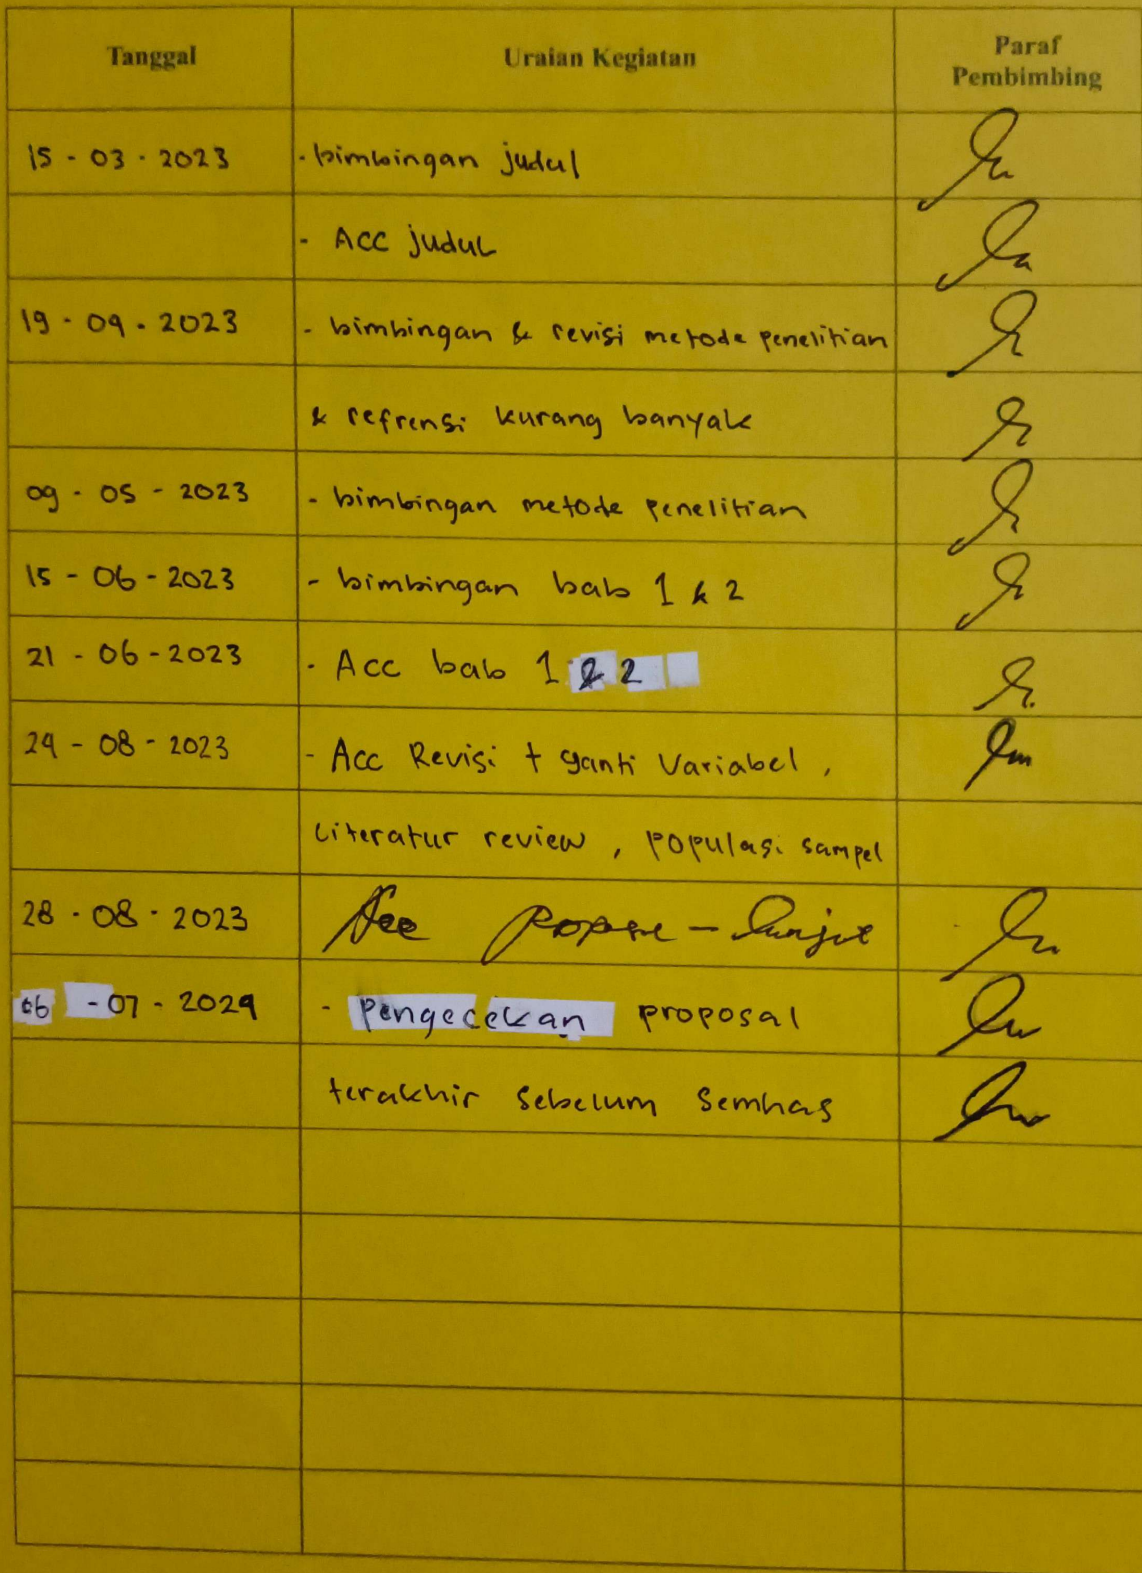 Tanggal Uraian Kegiatan Paraf Pembimbing
15 - 03 - 2023 - bimbingan judul
- ACC judul
19 - 04 - 2023 - bimbingan & revisi metode penelitian
& refrensi kurang banyak
09 - 05 - 2023 - bimbingan metode penelitian
15 - 06 - 2023 - bimbingan bab 1 & 2
21 - 06 - 2023 - Acc bab 1 & 2
24 - 08 - 2023 - Acc Revisi + ganti Variabel ,
Literatur review , populasi sampel
28 - 08 - 2023 Acc - lanjut
06 - 07 - 2024 - Pengecekan proposal
terakhir sebelum semhas